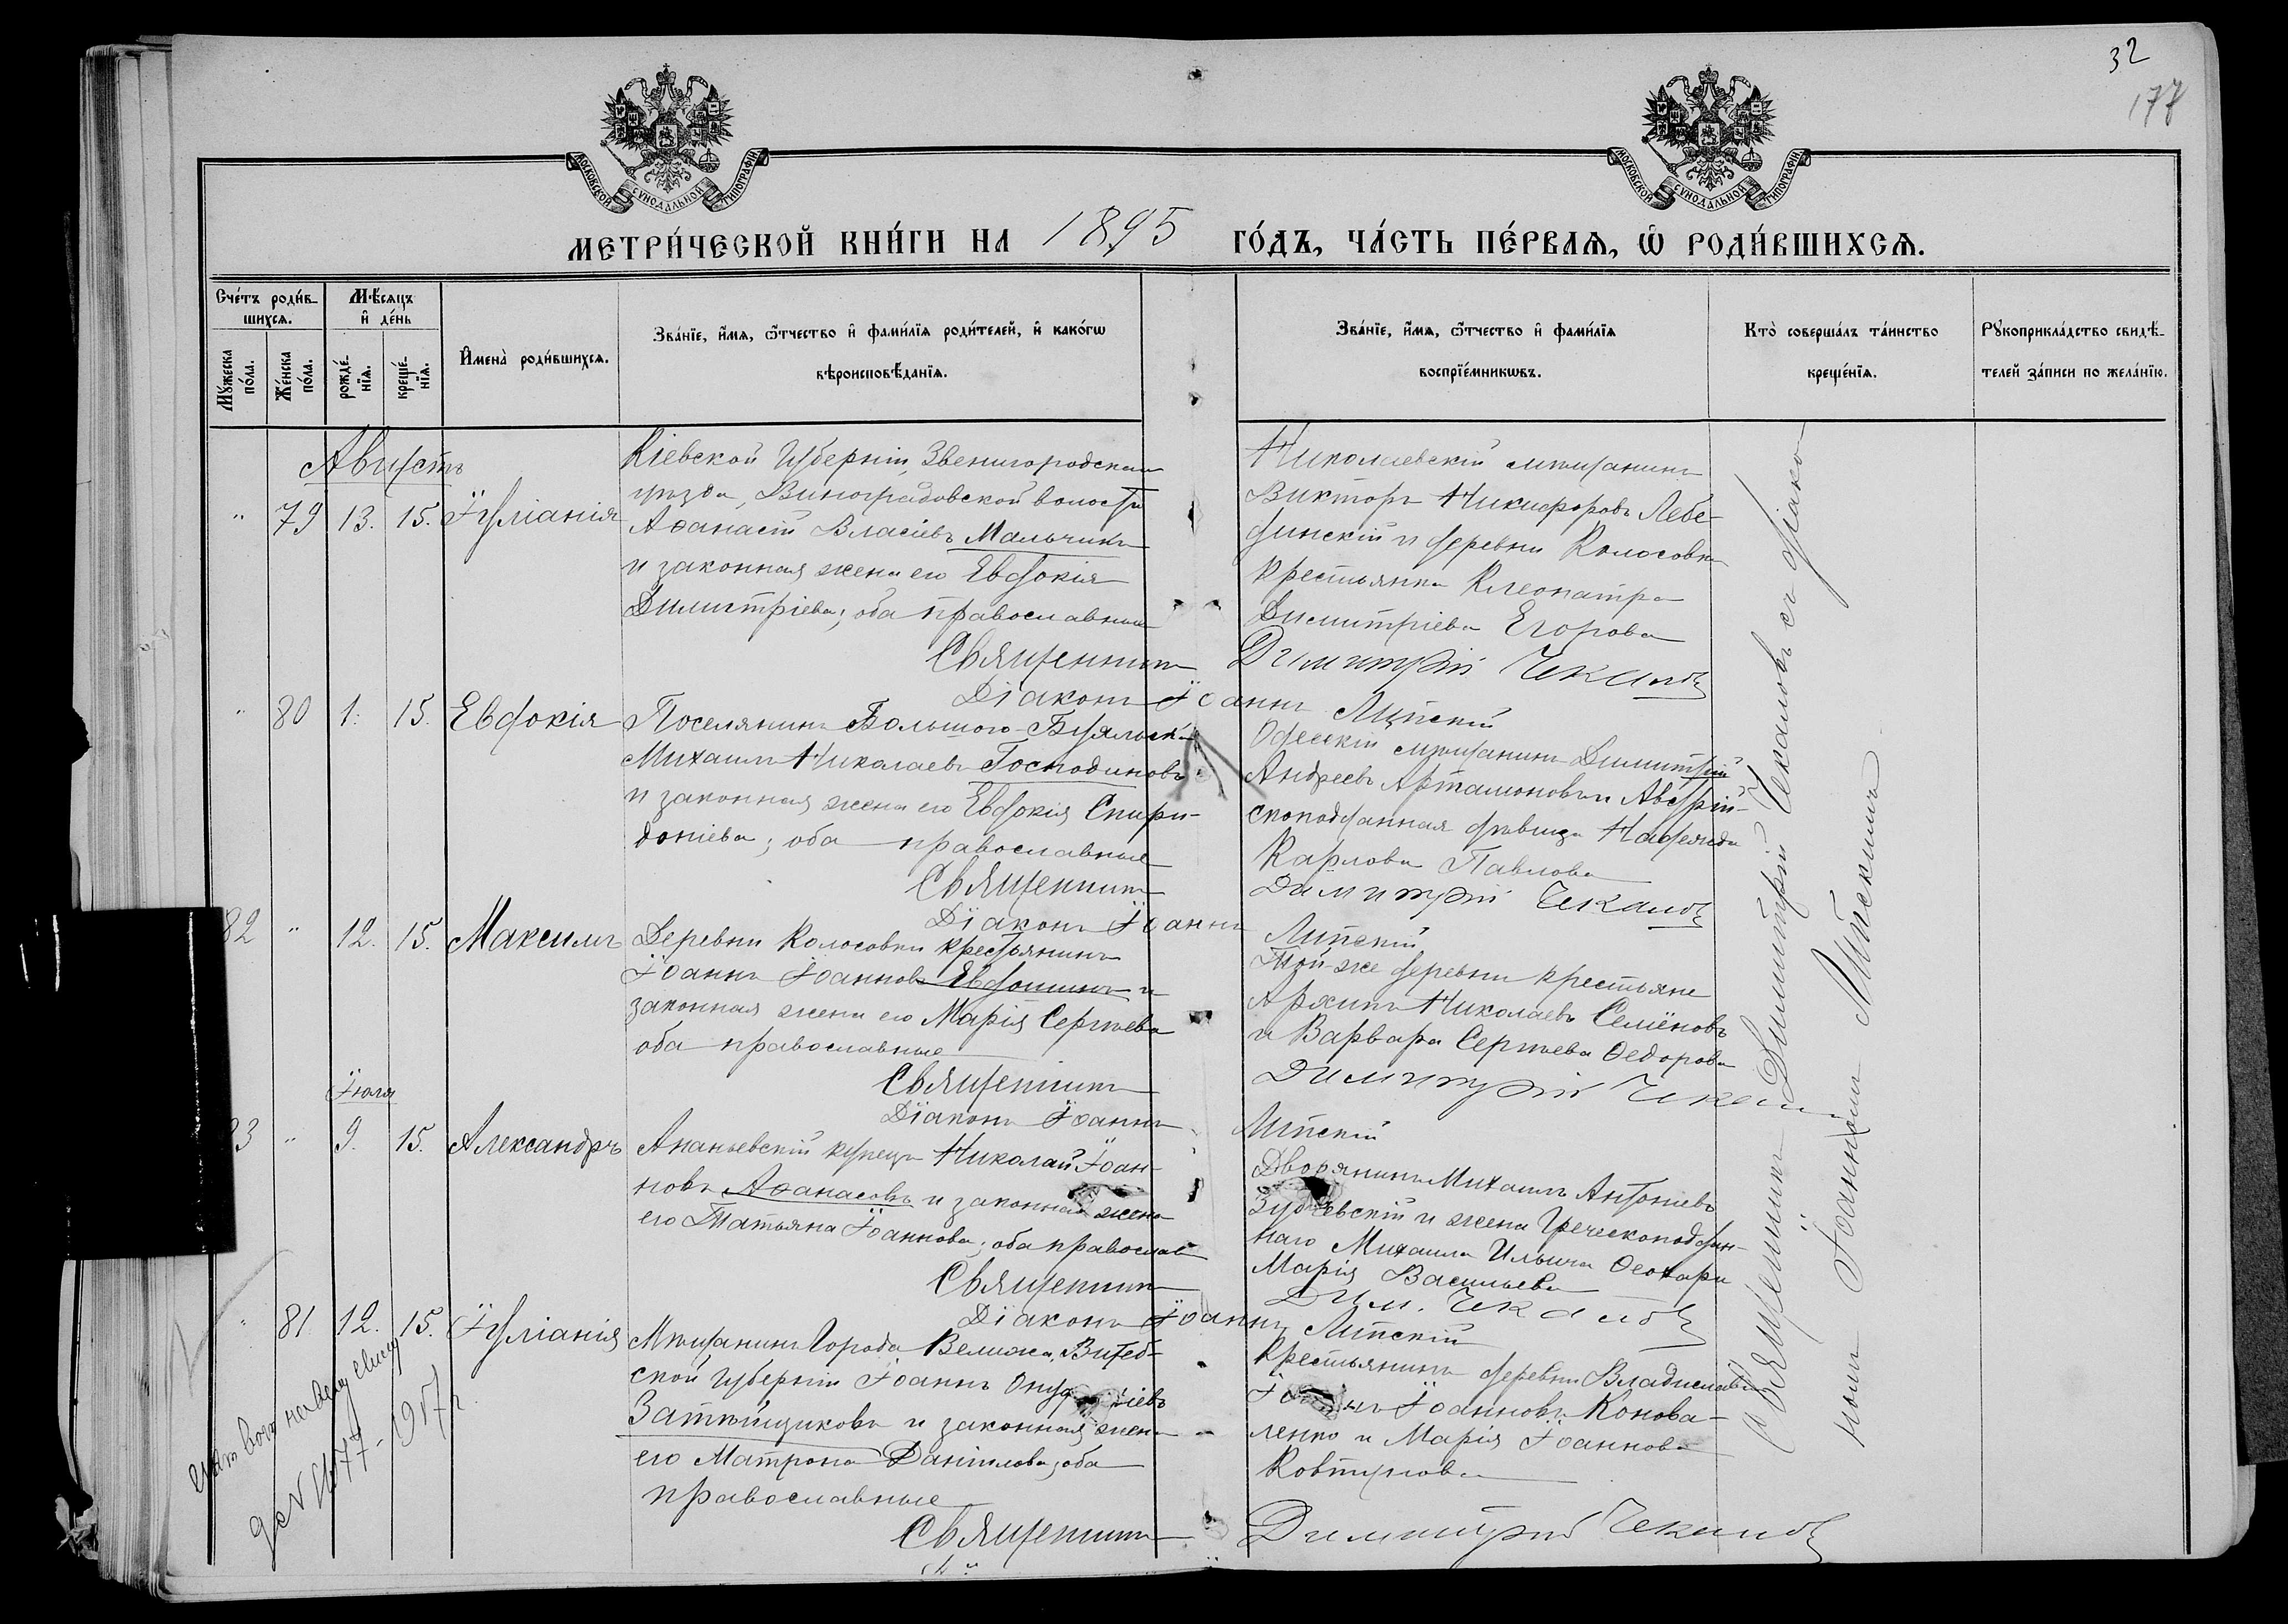 32
177
МОСКОВСКОЙ СУНОДАЛЬНОЙ ТИПОГРАФІИ
МОСКОВСКОЙ СУНОДАЛЬНОЙ ТИПОГРАФІИ
МЕТРИ́ЧЕСКОЙ КНИ́ГИ НА 1895 ГО́ДЪ, ЧА́СТЬ ПЕ́РВАѦ, Ѽ РОДИ́ВШИХСѦ.
Сче́тъ роди́в-
шихсѧ.
Мꙋ́жеска по́ла.
Же́нска по́ла.
Мѣ́сѧцъ и҆ де́нь
рожде́-
нїѧ.
креще́-
нїѧ.
И҆мена̀ роди́вшихсѧ.
Зва́нїе, и҆́мѧ, ѻ҆́тчество и҆ фами́лїѧ роди́телей, и҆ како́гѡ
вѣроисповѣ́данїѧ.
Зва́нїе, и҆́мѧ, ѻ҆́тчество и҆ фами́лїѧ
воспрїе́мникѡвъ.
Кто̀ соверша́лъ та́инство
креще́нїѧ.
Рꙋкоприкла́дство свидѣ́-
телей за́писи по жела́нїю.
Августъ
" 79 13. 15. Іуліанія
Кіевской Губерніи, Звенигородскаго
уѣзда, Виноградовской волости
Аѳанасій Власіевъ Мальчикъ
и законная жена его Евдокія
Димитріева; оба православные
Николаевскій мѣщанинъ
Викторъ Никифоровъ Лебе-
динскій и деревни Колосовки
крестьянка Клеопатра
Димитріева Егорова
Священникъ Димитрій Чекановъ
Діаконъ Іоаннъ Липскій
" 80 1. 15. Евдокія
Поселянинъ Большого-Буялыка
Михаилъ Николаевъ Господиновъ
и законная жена его Евдокія Спири-
доніева; оба православные
Одесскій мѣщанинъ Димитрій
Андреевъ Артамоновъ и Австрій-
скоподданная дѣвица
Карлова Павлова
Священникъ Димитрій Чекановъ
Діаконъ Іоаннъ Липскій
82 " 12. 15. Максимъ
Деревни Колосовки крестьянинъ
Іоаннъ Іоанновъ Евдошинъ и
законная жена его Марія Сергѣева
оба православные
Той-же деревни крестьяне
Архипъ Николаевъ Семёновъ
и Варвара Сергѣева Ѳедорова
Священникъ Димитрій Чекановъ
Діаконъ Іоаннъ Липскій
Іюля
83 " 9. 15. Александръ
Ананьевскій купецъ Николай Іоан-
новъ Аѳанасовъ и законная жена
его Татьяна Іоаннова; оба православ
Дворянинъ Михаилъ Антоніевъ
и жена Греческоподдан-
наго Михаила Ильича Ѳеохари
Марія Васильева
Священникъ Дим. Чекановъ
Діаконъ Іоаннъ Липскій
" 81 12. 15. Іуліанія
Мѣщанинъ города Велижа, Витеб-
ской губерніи Іоаннъ Онуфріевъ
Затѣйщиковъ и законная жена
его Матрона Даніилова; оба
православные
Крестьянинъ деревни Владиславки
Іоаннъ Іоанновъ Конова-
ленко и Марія Іоаннова
Ковтунова
Священникъ Димитрій Чекановъ
Священникъ Димитрій Чекановъ съ діако-
номъ Іоанномъ Липскимъ
1917 г.